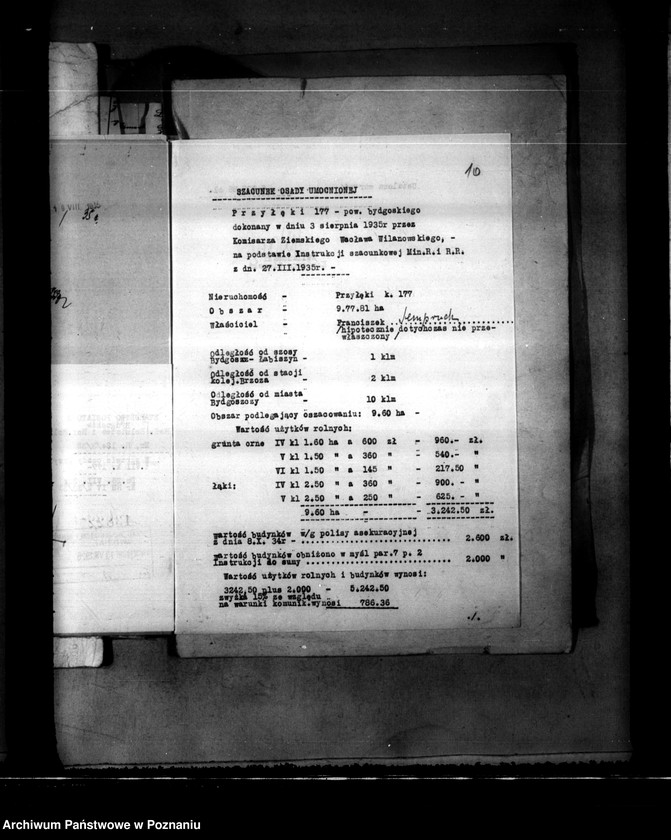 10
SZACUNEK OSADY UMOCNIONEJ
P r z y ł ę k i 177 - pow. bydgoskiego
dokonany w dniu 3 sierpnia 1935r przez
Komisarza Ziemskiego Wacława Wilanowskiego, -
na podstawie Instrukcji szacunkowej Min.R.i R.R.
z dn. 27.III.1935r. -
Nieruchomość - Przyłęki k. 177
O b s z a r - 9.77.81 ha
Właściciel - Franciszek
/hipotecznie dotychczas nie prze-
właszczony/
odległość od szosy
Bydgoszcz- Łabiszyn - 1 klm
odległość od stacji
kolej.Brzoza - 2 klm
Odległość od miasta
Bydgoszczy - 10 klm
Obszar podlegający oszacowaniu: 9.60 ha -
Wartość użytków rolnych:
grunta orne IV kl 1.60 ha a 600 zł - 960.- zł.
V kl 1.50 " a 360 " - 540.- "
VI kl 1.50 " a 145 " - 217.50 "
łąki: IV kl 2.50 " a 360 " - 900.- "
V kl 2.50 " a 250 " - 625. - "
9.60 ha - - 3.242.50 zł.
wartość budynków w/g polisy asekuracyjnej
z dnia 8.X. 34r - 2.600 zł.
wartość budynków obniżono w myśl par.7 p. 2
Instrukcji do sumy 2.000 "
Wartość użytków rolnych i budynków wynosi:
3242.50 plus 2.000 - 5.242.50
zwyżka 15% ze względu
na warunki komunik.wynosi 786.36
./.
Archiwum Państwowe w Poznaniu